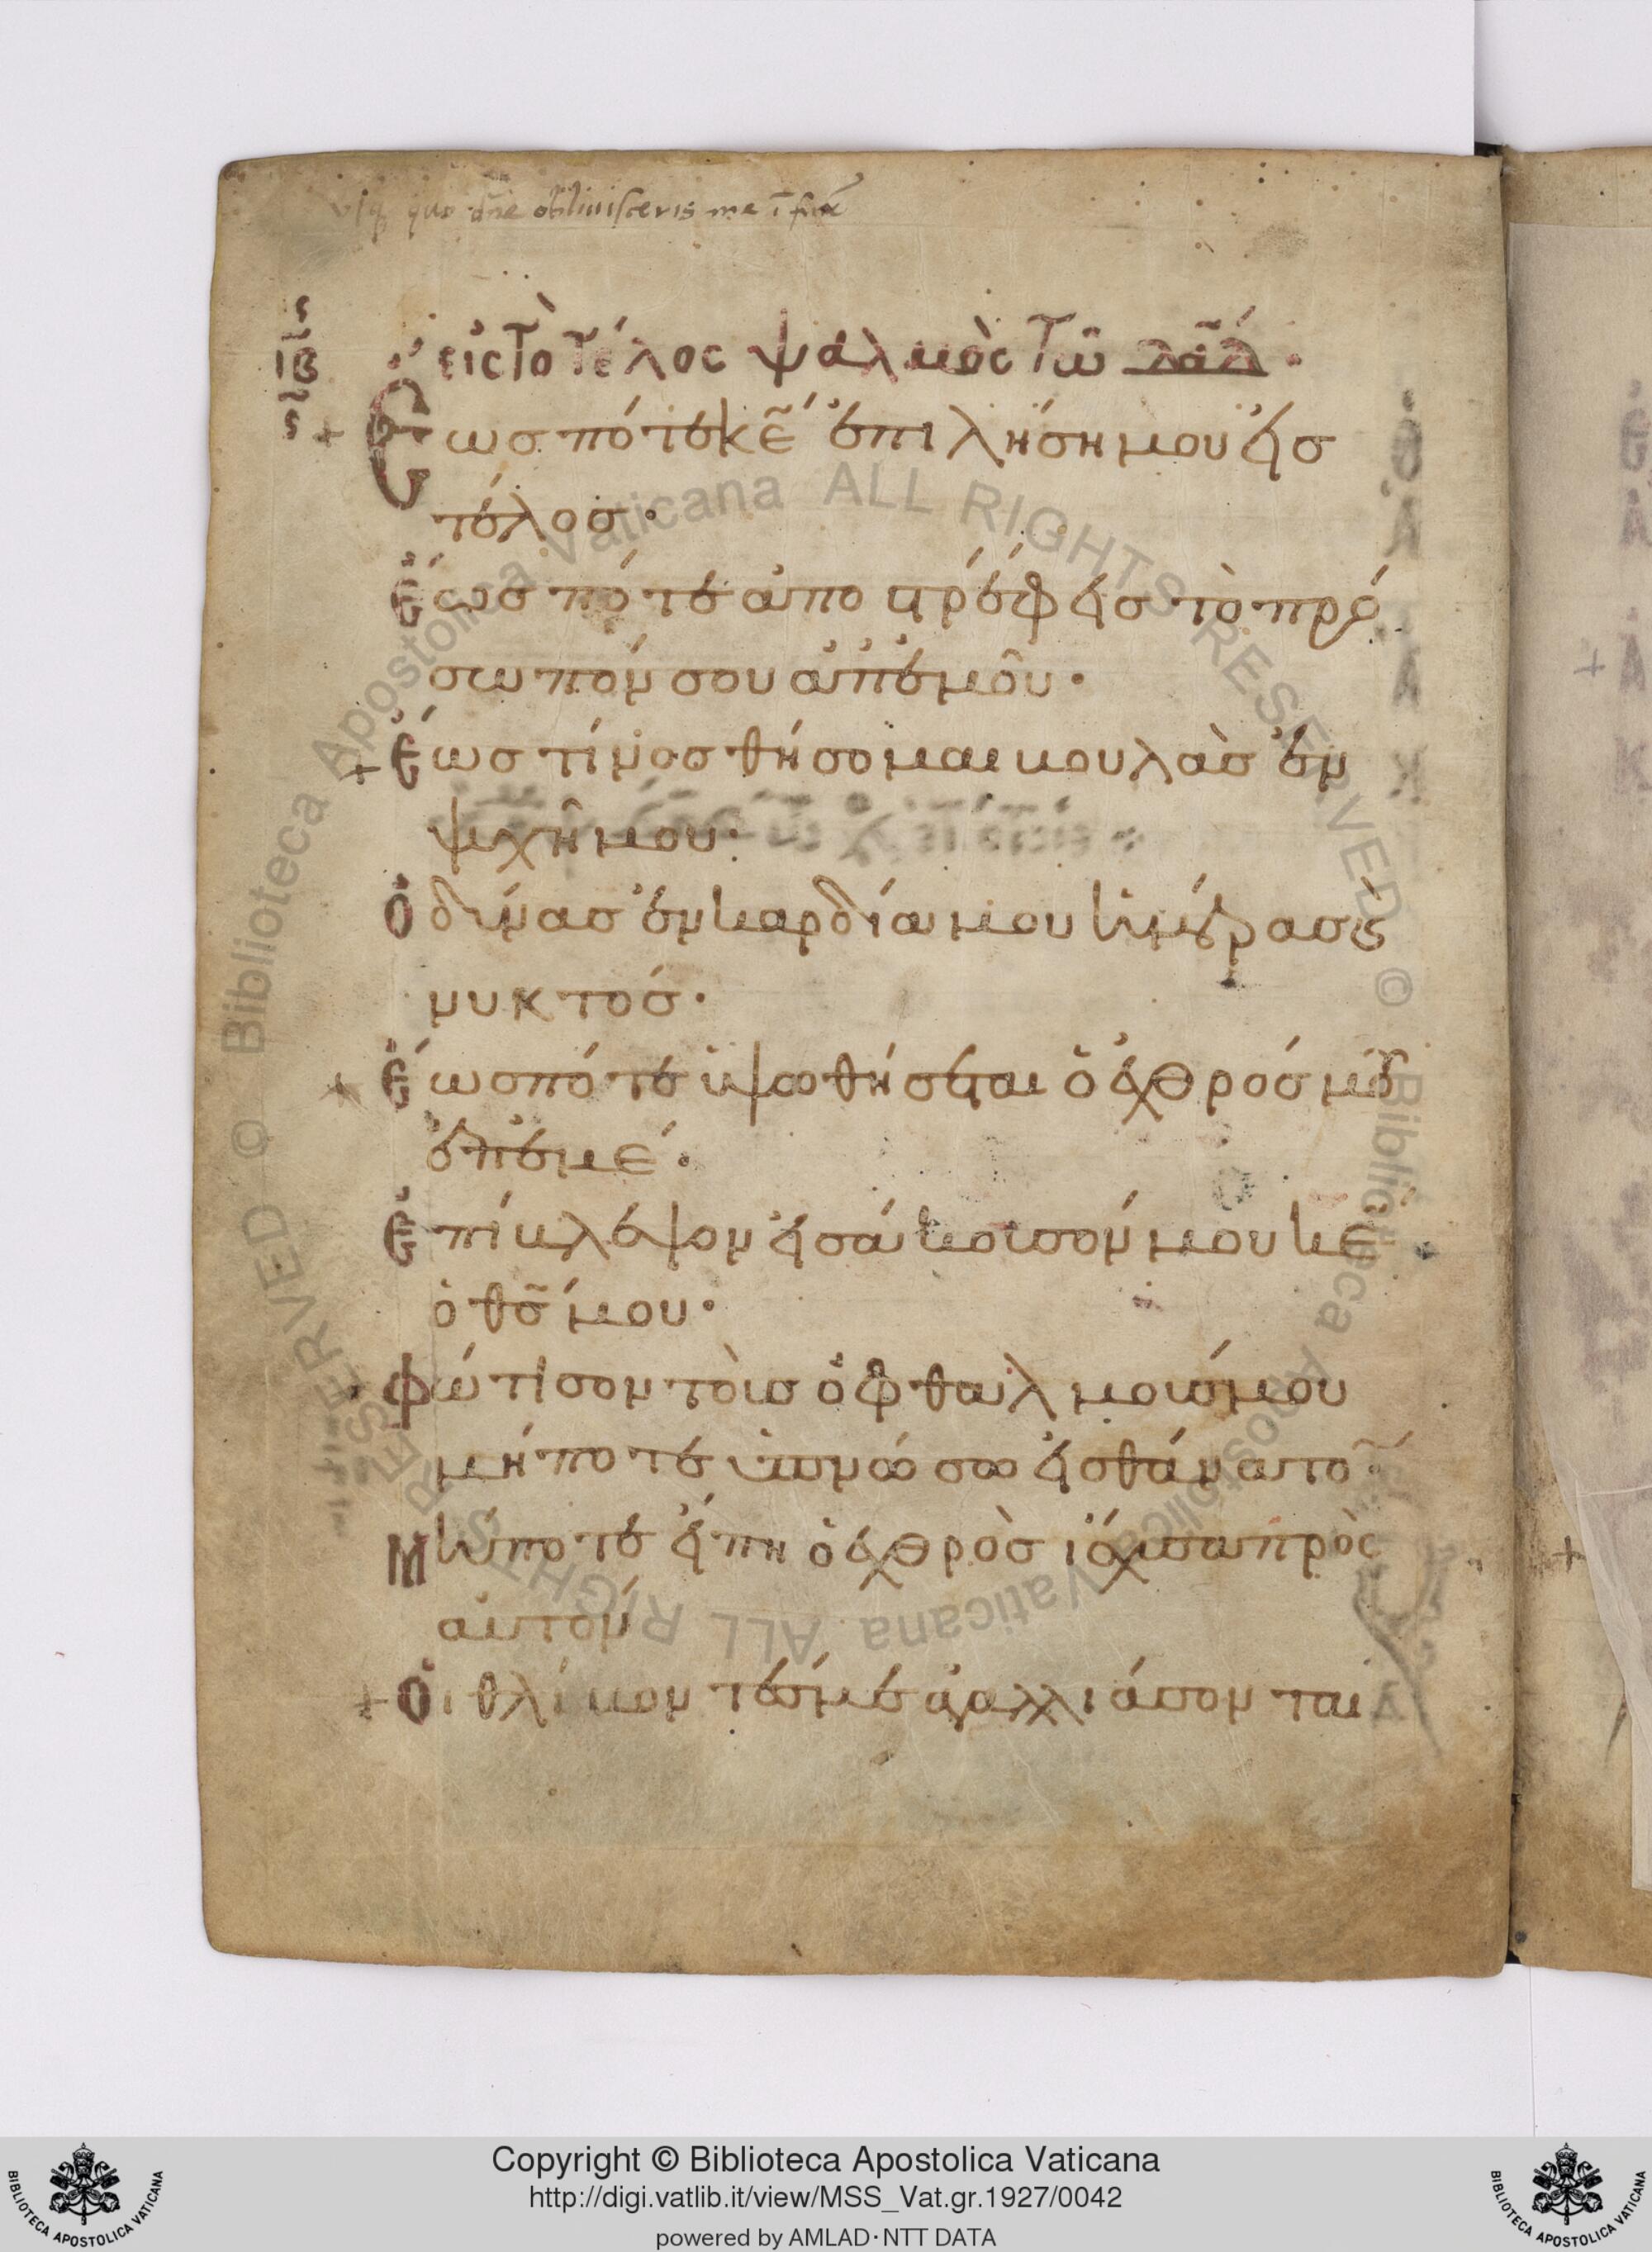 usq quo dn̄e obliuisceris me ī finē
ιβ̄
εἰς τὸ τέλος ψαλμὸς τῶ δᾱδ·
Ἕως πότε κ̄ε ἐπιλήση μου εἰς
τέλος·
Ἕως πότε ἀποστρέφεις τὸ πρό
σωπόν σου ἀπ' ἐμοῦ·
Ἕως τίνος θήσομαι βουλὰς ἐν
ψυχῆ μου·
Ὀδύνας ἐν καρδία μου ἡμέρας κ
νυκτός·
Ἕως πότε ὑψωθήσεται ὁ ἐχθρός μου
ἐπ' ἐμέ·
Ἐπίβλεψον εἰσάκουσόν μου κ̄ε
ὁ θ̄ς μου·
Φώτισον τοὺς ὀφθαλμούς μου
μήποτε ὑπνώσω εἰς θάνατον
Μήποτε εἴπη ὁ ἐχθρὸς ἴσχυσα πρὸς
αὐτόν
Οἱ θλίβοντές με ἀγαλλιάσονται
© Biblioteca Apostolica Vaticana ALL RIGHTS RESERVED © Biblioteca Apostolica Vaticana ALL RIGHTS RESERVED
BIBLIOTECA APOSTOLICA VATICANA
Copyright © Biblioteca Apostolica Vaticana
http://digi.vatlib.it/view/MSS_Vat.gr.1927/0042
powered by AMLAD·NTT DATA
BIBLIOTECA APOSTOLICA VATICANA